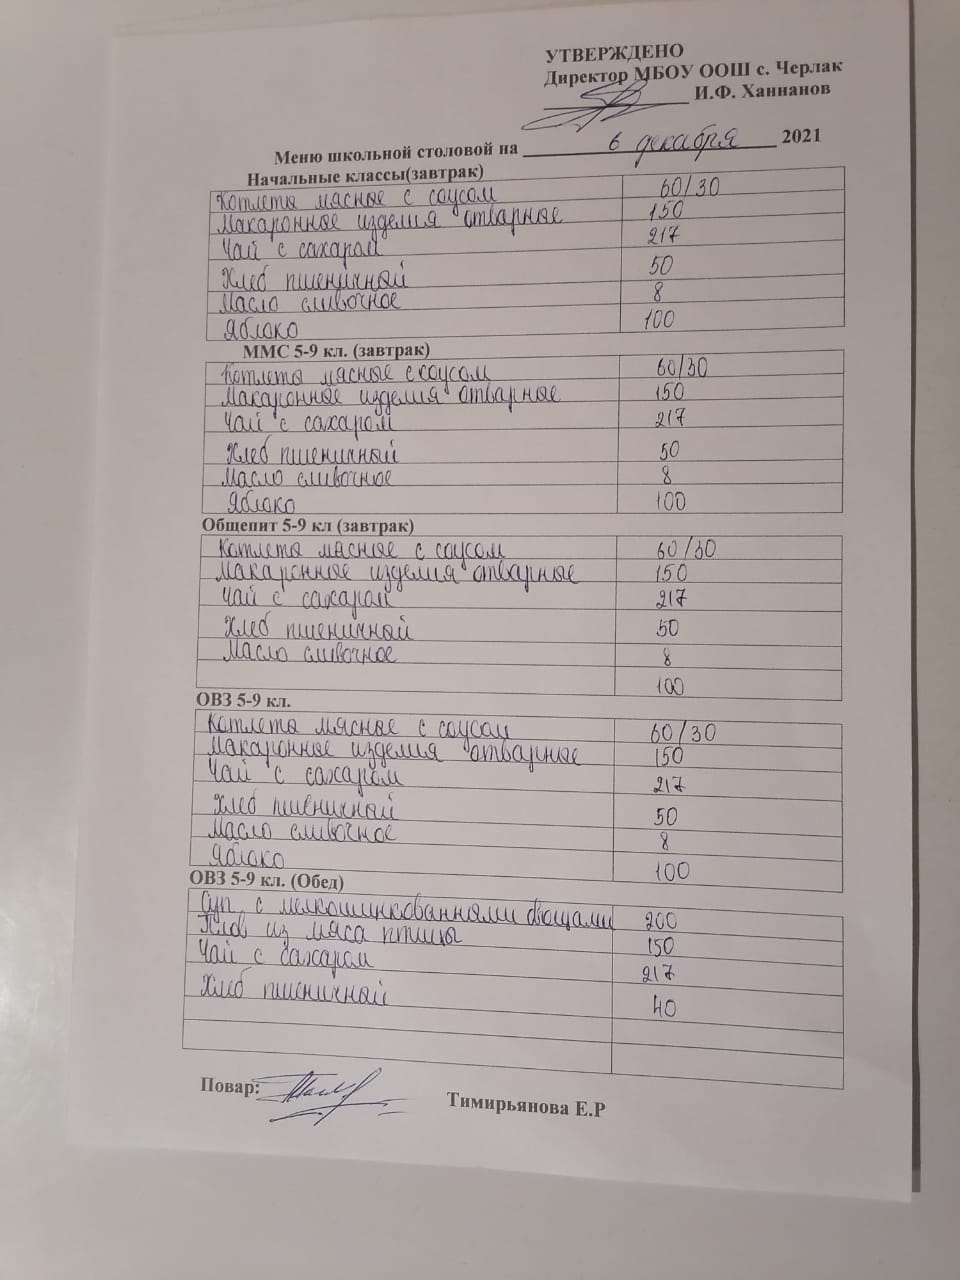 УТВЕРЖДЕНО
Директор МБОУ ООШ с. Черлак
И.Ф. Ханнанов
Меню школьной столовой на 6 декабря 2021
Начальные классы(завтрак)
Котлета мясное с соусом 60/30
Макаронное изделия отварное 150
Чай с сахаром 217
Хлеб пшеничный 50
Масло сливочное 8
Яблоко 100
ММС 5-9 кл. (завтрак)
Котлета мясное с соусом 60/30
Макаронное изделия отварное 150
Чай с сахаром 217
Хлеб пшеничный 50
Масло сливочное 8
Яблоко 100
Общепит 5-9 кл (завтрак)
Котлета мясное с соусом 60/30
Макаронное изделия отварное 150
Чай с сахаром 217
Хлеб пшеничный 50
Масло сливочное 8
100
ОВЗ 5-9 кл.
Котлета мясное с соусом 60/30
Макаронное изделия отварное 150
Чай с сахаром 217
Хлеб пшеничный 50
Масло сливочное 8
Яблоко 100
ОВЗ 5-9 кл. (Обед)
Суп с мелкошинкованнями овощами 200
Плов из мяса птицы 150
Чай с сахаром 217
Хлеб пшеничный 40
Повар: Тимирьянова Е.Р